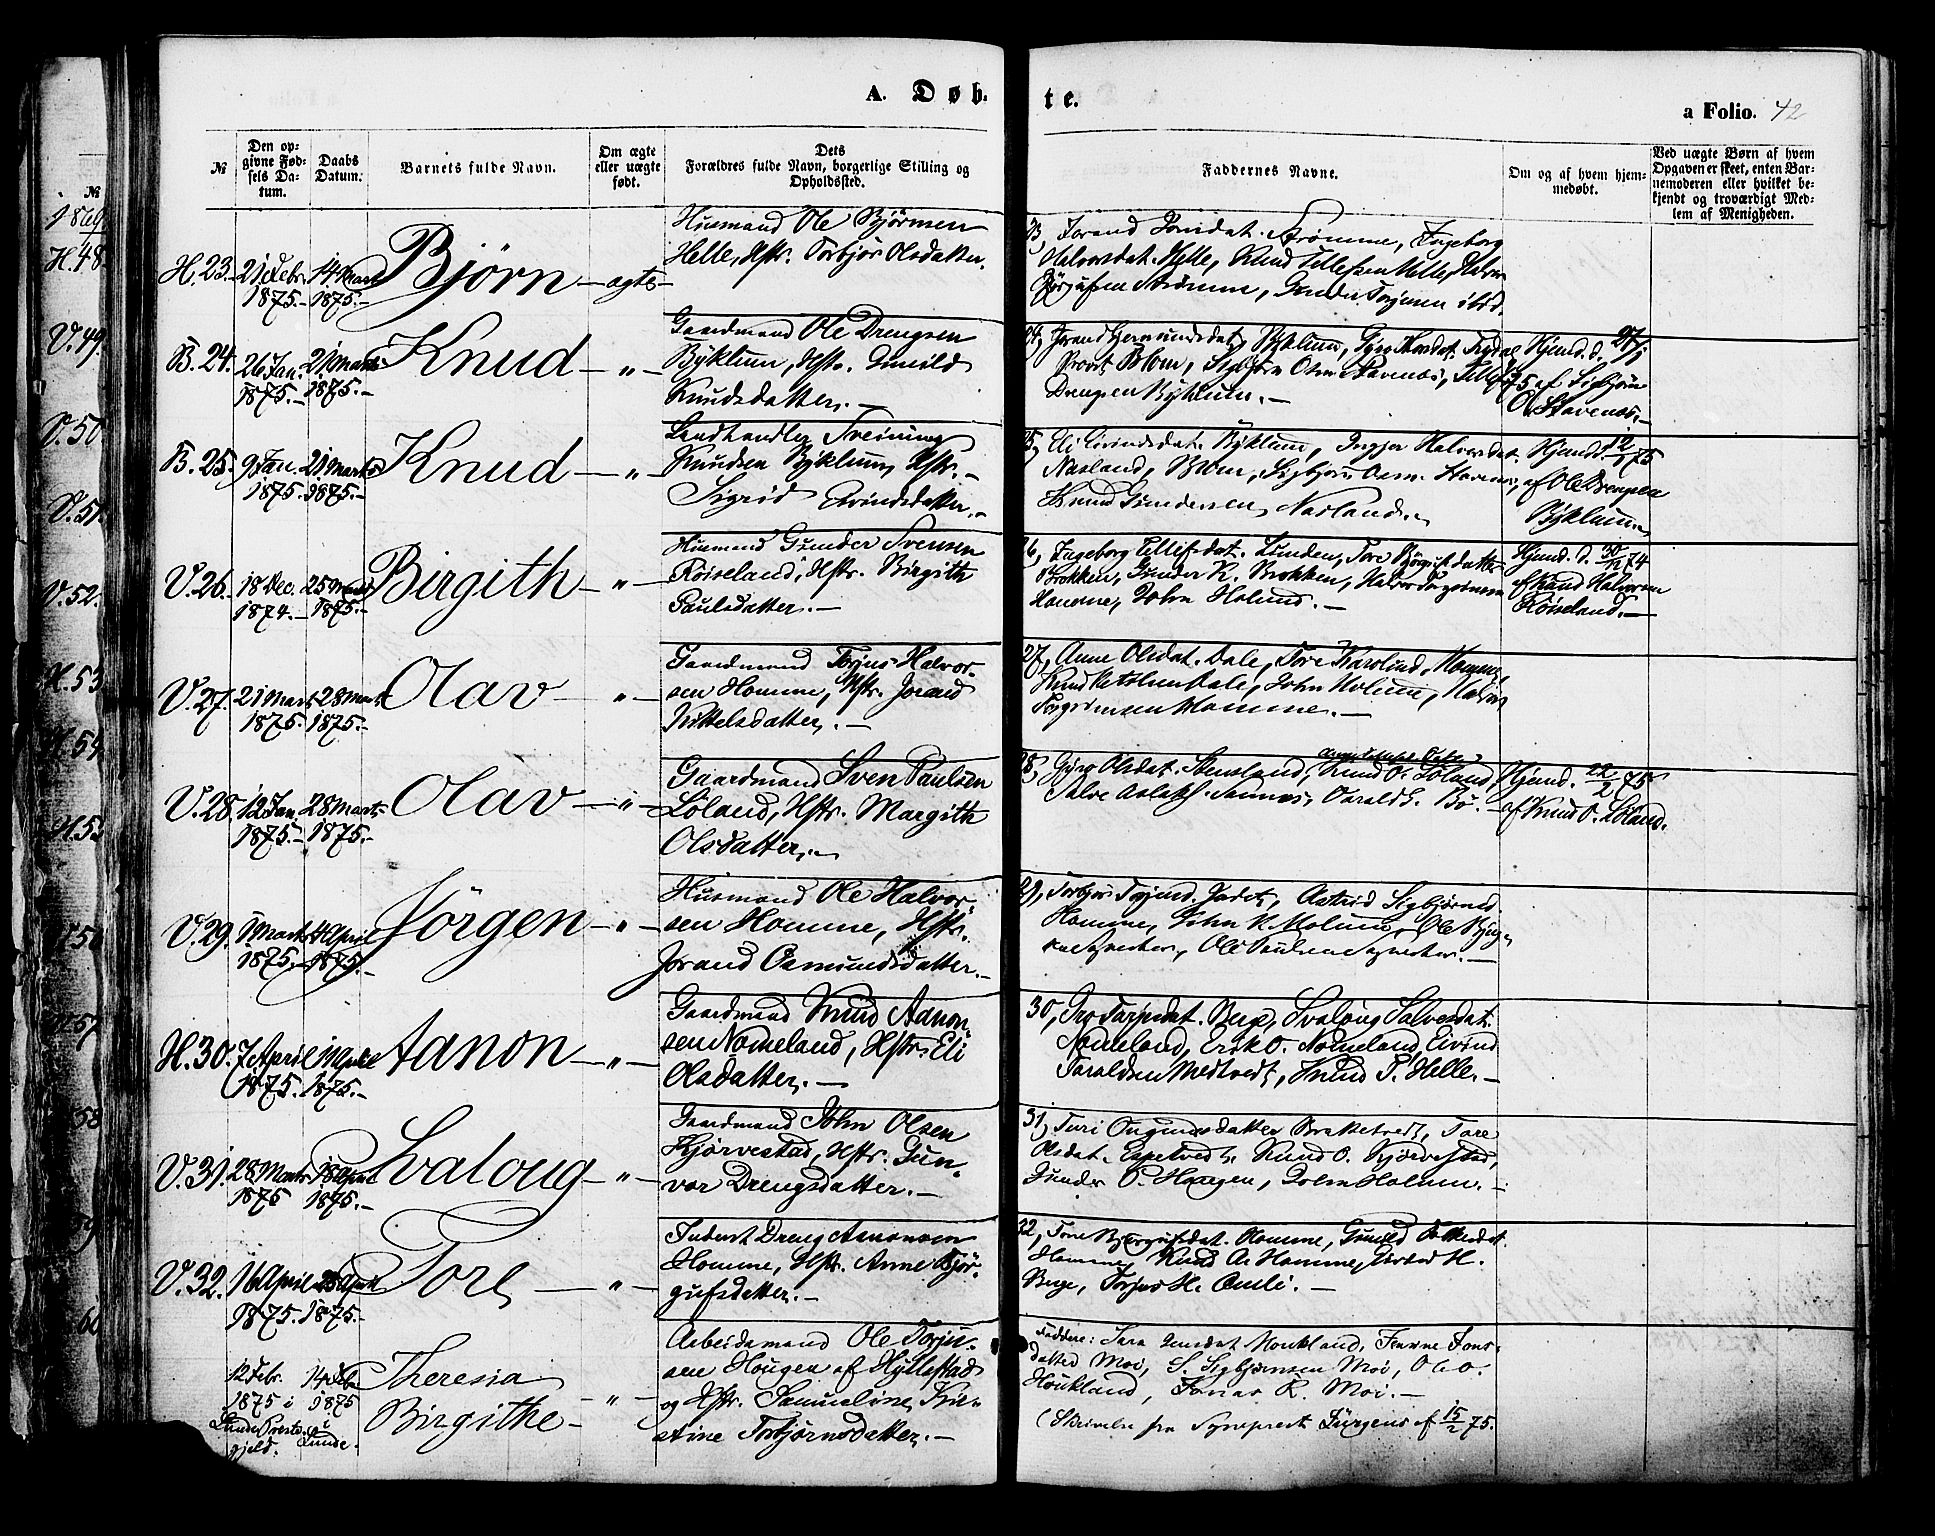 A. Døb-
te.
a Folio. 42
№
Den op-
givne Fød-
sels Da-
tum.
Daabs
Datum.
Barnets fulde Navn.
Om ægte
eller uægte
født.
Dets
Forældres fulde Navn, borgerlige Stilling og
Opholdssted.
Faddernes Navne.
Om og af hvem hjem-
medøbt.
Ved uægte Børn af hvem
Opgaven er skeet, enten Bar-
nemoderen eller hvilket be-
kjendt og troværdigt Med-
lem af Menigheden.
№
H. 48.
V. 49.
V. 50.
V. 51.
V. 52.
H. 53
H. 54
57
58
H. 23.
21 Febr.
1875.
14 Marts
1875.
Bjørn
ægte
Husmand Ole Bjørnsen
Helle, Hstr. Torbjør Olsdatter.
Jorand Jonsdat. Strømme, Ingeborg
Halvorsdat. Helle, Knud Tellefsen Helle, Halvor
B. 24.
26 Jan.
1875.
21 Marts
1875.
Knud
"
Gaardmand Ole Drengsen
Byklum, Hstr. Gunild
Knudsdatter.
24, Jorand Germundsdat. Byklum,
Provst Blom, Sigbjørn Osm. Stavenæs, Tellef
Drengsen Byklum.
Hjemd. d. 27/1
75 af Sigbjørn
O. Stavenæs.
B. 25.
9 Jan.
1875.
21 Marts
1875.
Knud
"
Landhandler Sveinung
Knudsen Byklum, Hstr.
Sigrid Eivindsdatter.
25, Eli Eivindsdat. Byklum, Ingjer Halvorsdat.
Nasland, Blom, Sigbjørn Osm. Stavenæs,
Knud Gundersen Nasland.
Hjemd. 12/1 75
af Ole Drengsen
Byklum.
V. 26.
18 Dec.
1874.
25 Marts
1875.
Birgith
"
Husmand Gunder Svensen
Røiseland, Hstr. Birgith
Paulsdatter.
26, Ingeborg Tellefsdat. Lunden, Tore Bjørgufsdatter
Brokken, Gunder K. Brokken, Halvor Torgrimsen
Homme, John Holum.
Hjemd. d. 30/12 74
af Knud Halvorsen
Røiseland.
V. 27.
21 Marts
1875.
28 Marts
1875.
Olav
"
Gaardmand Torjus Halvor-
sen Homme, Hstr. Jorand
Kittelsdatter.
27, Anne Olsdat. Dale, Tore Homme,
Knud Kittelsen Dale, John Holum, Halvor
Torgrimsen Homme.
V. 28.
12 Jan.
1875.
28 Marts
1875.
Olav
"
Gaardmand Sven Paulsen
Løland, Hstr. Margith
Olsdatter.
28, Gyro Olsdat. Stensland, Knud O. Løland,
Salve Aslaks. Sannes, Tarald G. Bø.
Hjemd. 22/2 75
af Knud O. Løland.
V. 29.
1 Marts
1875.
4 April
1875.
Jørgen
"
Husmand Ole Halvor-
sen Homme, Hstr.
Jorand Osmundsdatter.
29, Torbjør Astrid Sigbjørnsd.
Homme, John K. Holum, Ole
H. 30.
7 April
1875.
11 April
1875.
Aanon
"
Gaardmand Knud Aanon-
sen Nomeland, Hstr. Eli
Olsdatter.
30, Gro Tarjeidat. Berg, Svaloug Salvesdat.
Nomeland, Erik O. Nomeland, Eivind
Taraldsen Medtvedt, Knud T. Helle.
V. 31.
28 Marts
1875
18 April
1875.
Svaloug
"
Gaardmand John Olsen
Kjørvestad, Hstr. Gun-
vor Drengsdatter.
31, Turi Brakketvedt, Tore
Olsdat. Espetvedt, Knud O. Kjørvestad,
Gunder P. Haugen, John Holum.
V. 32.
16 April
1875.
25 April
1875.
Tore
"
Inderst Dreng Aanonsen
Homme, Hstr. Anne Bjør-
gufsdatter.
32, Tore Bjørgufsdat. Homme, Gunild
Homme, Knud A. Homme, H.
Berge, Torjus H. Omli.
12 Febr.
1875 i
Lunde Præste-
gjeld.
14 Feb.
1875
i
Lunde
Theresia
Birgithe
"
Arbeidsmand Ole Torju-
sen Hougen af Hyllestad
og Hstr. Samueline Kri-
stine Torbjørnsdatter.
Faddere: Sara Houkland,
Moi, S. Sigbjørnsen Moi, Ole O.
Houkland, R. Moi.
(Skrivelse fra Sogneprest Jürgens af 15/2 75.